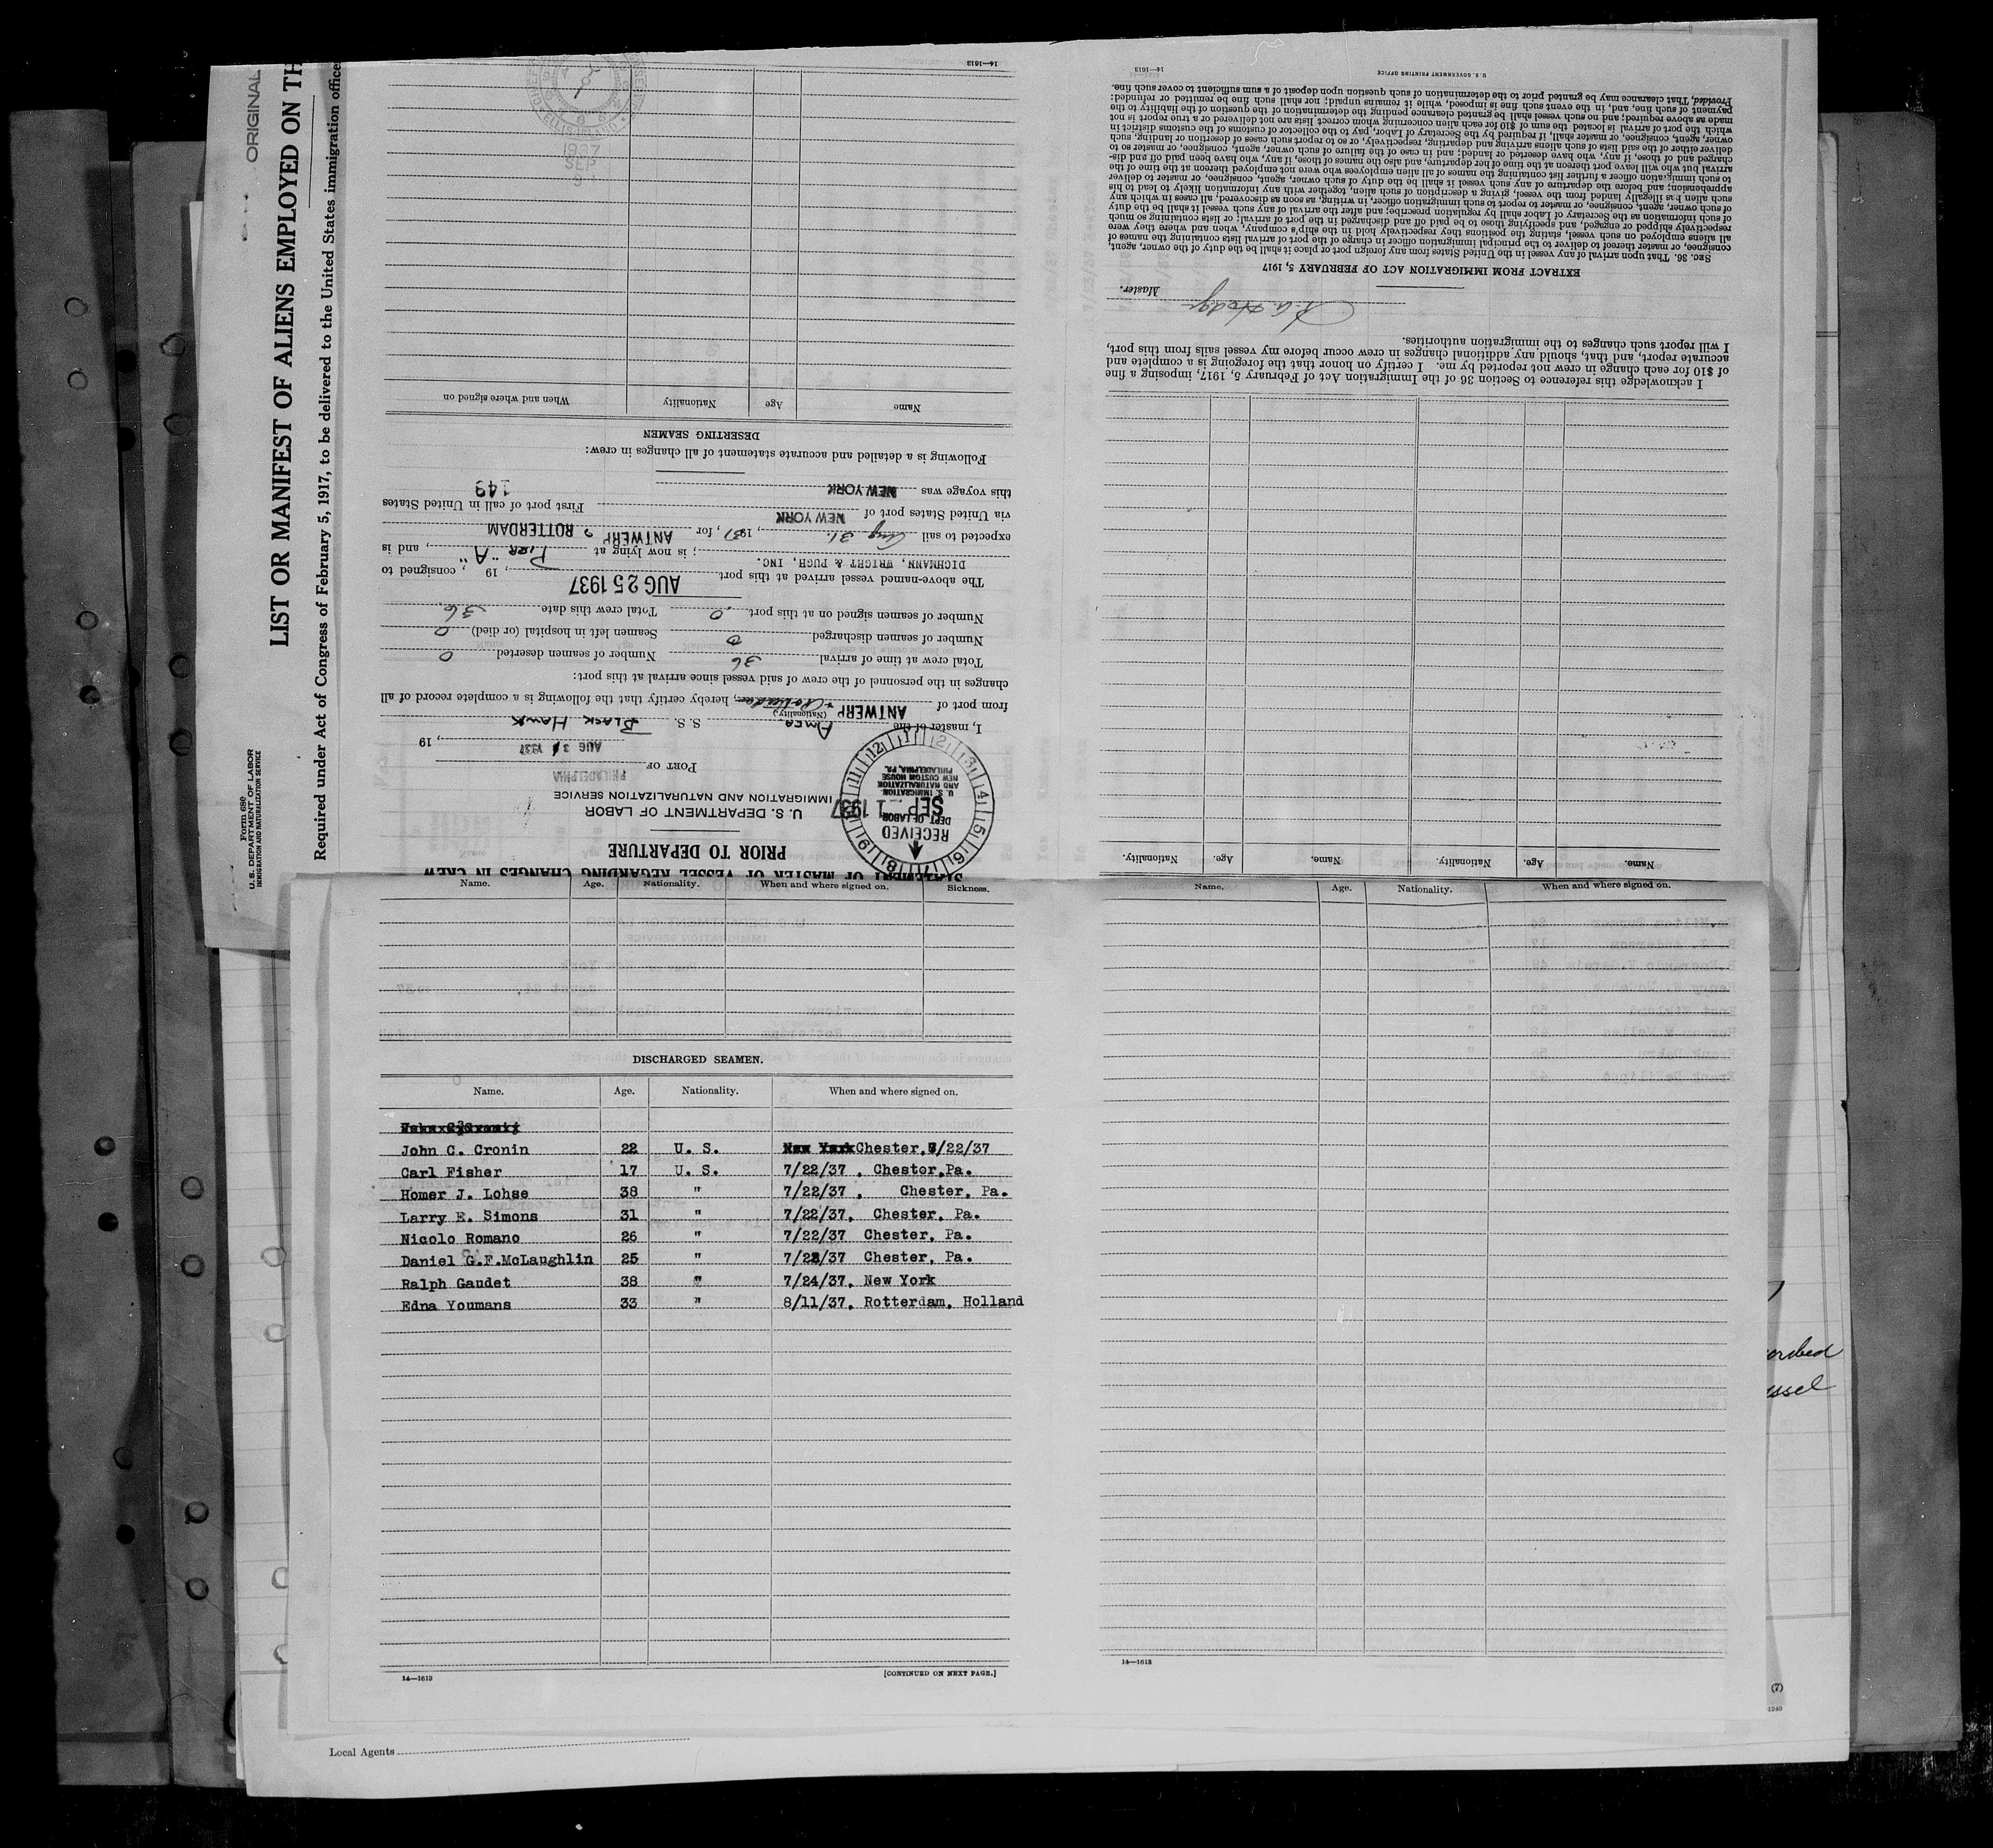 ORIGINAL
LIST OR MANIFEST OF ALIENS EMPLOYED ON TH
Required under Act of Congress of February 5, 1917, to be delivered to the United States immigration office
Form 680
U. S. DEPARTMENT OF LABOR
IMMIGRATION AND NATURALIZATION SERVICE
STATEMENT OF MASTER OF VESSEL REGARDING CHANGES IN CREW
PRIOR TO DEPARTURE
U. S. DEPARTMENT OF LABOR
IMMIGRATION AND NATURALIZATION SERVICE
RECEIVED
DEPT OF LABOR
SEP 1 1937
U. S. IMMIGRATION
AND NATURALIZATION
NEW CUSTOM HOUSE
PHILADELPHIA, PA.
PORT OF PHILADELPHIA
AUG 31 1937, 19
I, master of the Amer. S. S. Black Hawk
(Nationality)
from port of ANTWERP + Rotterdam, hereby certify that the following is a complete record of all
changes in the personnel of the crew of said vessel since arrival at this port:
Total crew at time of arrival 36 Number of seamen deserted 0
Number of seamen discharged 0 Seamen left in hospital (or died) 0
Number of seamen signed on at this port 0 Total crew this date 36
The above-named vessel arrived at this port AUG 25 1937, 19 , consigned to
DICHMANN, WRIGHT & PUGH, INC.; is now lying at Pier "A", and is
expected to sail Aug 31, 1937, for ANTWERP & ROTTERDAM
via United States port of NEW YORK First port of call in United States
this voyage was NEW YORK 149
Following is a detailed and accurate statement of all changes in crew:
DESERTING SEAMEN
Name Age Nationality When and where signed on
1937
SEP
14—1613
Name. Age. Nationality. Name. Age. Nationality.
I acknowledge this reference to Section 36 of the Immigration Act of February 5, 1917, imposing a fine
of $10 for each change in crew not reported by me. I certify on honor that the foregoing is a complete and
accurate report, and that, should any additional changes in crew occur before my vessel sails from this port,
I will report such changes to the immigration authorities.
Master.
EXTRACT FROM IMMIGRATION ACT OF FEBRUARY 5, 1917
SEC. 36. That upon arrival of any vessel in the United States from any foreign port or place it shall be the duty of the owner, agent,
consignee, or master thereof to deliver to the principal immigration officer in charge of the port of arrival lists containing the names of
all aliens employed on such vessel, stating the positions they respectively hold in the ship's company, when and where they were
respectively shipped or engaged, and specifying those to be paid off and discharged in the port of arrival; or lists containing so much
of such information as the Secretary of Labor shall by regulation prescribe; and after the arrival of any such vessel it shall be the duty
of such owner, agent, consignee, or master to report to such immigration officer, in writing, as soon as discovered, all cases in which any
such alien has illegally landed from the vessel, giving a description of such alien, together with any information likely to lead to his
apprehension; and before the departure of any such vessel it shall be the duty of such owner, agent, consignee, or master to deliver
to such immigration officer a further list containing the names of all alien employees who were not employed thereon at the time of the
arrival but who will leave port thereon at the time of her departure, and also the names of those, if any, who have been paid off and dis-
charged and of those, if any, who have deserted or landed; and in case of the failure of such owner, agent, consignee, or master so to
deliver either of the said lists of such aliens arriving and departing, respectively, or so to report such cases of desertion or landing, such
owner, agent, consignee, or master shall, if required by the Secretary of Labor, pay to the collector of customs of the customs district in
which the port of arrival is located the sum of $10 for each alien concerning whom correct lists are not delivered or a true report is not
made as above required; and no such vessel shall be granted clearance pending the determination of the question of the liability to the
payment of such fine, and, in the event such fine is imposed, while it remains unpaid; nor shall such fine be remitted or refunded:
Provided, That clearance may be granted prior to the determination of such question upon deposit of a sum sufficient to cover such fine.
U. S. GOVERNMENT PRINTING OFFICE 14—1613
Name. Age. Nationality. When and where signed on. Sickness.
Name. Age. Nationality. When and where signed on.
DISCHARGED SEAMEN.
Name. Age. Nationality. When and where signed on.
John C. Cronin 22 U. S. New York Chester, /22/37
Carl Fisher 17 U. S. 7/22/37 , Chester,Pa.
Homer J. Lohse 38 " 7/22/37 , Chester, Pa.
Larry E. Simons 31 " 7/22/37, Chester, Pa.
Nicolo Romano 26 " 7/22/37 Chester, Pa.
Daniel G.F.McLaughlin 25 " 7/22/37 Chester, Pa.
Ralph Gaudet 38 " 7/24/37, New York
Edna Youmans 33 " 8/11/37, Rotterdam, Holland
14—1613 [CONTINUED ON NEXT PAGE.]
14—1613
(7)
1240
Local Agents